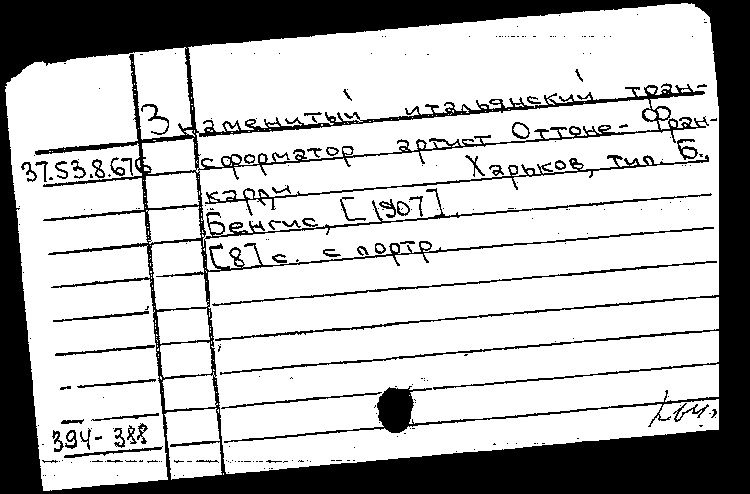 Знаменитый итальянский тран-
37.53.8.676 сформатор артист Оттоне-Фран-
карди. Харьков, тип. Б.
Бенгис, [1907].
[8] с. с портр.
394-388